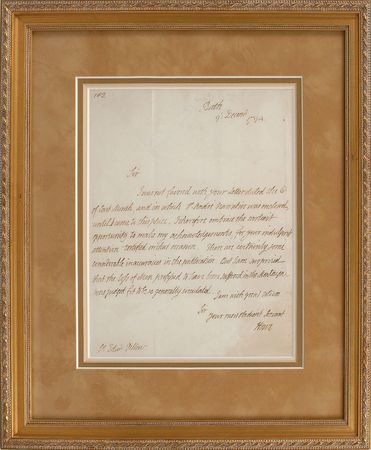 Bath
9 Decemb
1794
Sir
I was not favored with your letter dated the 6
of last Month, and in which Narrative was enclosed,
until I came to this place. I therefore embrace the earliest
opportunity to make my acknowledgements for your indulgent
attention on this occasion. There are certainly some
inaccuracies in the publication. But I am surprised
that the loss of Men professed to have been suffered in the
was judged fit to be so generally circulated.
I am with great esteem
Sir
your most obedient Servant
Howe
Sr. Edwd. Pellew